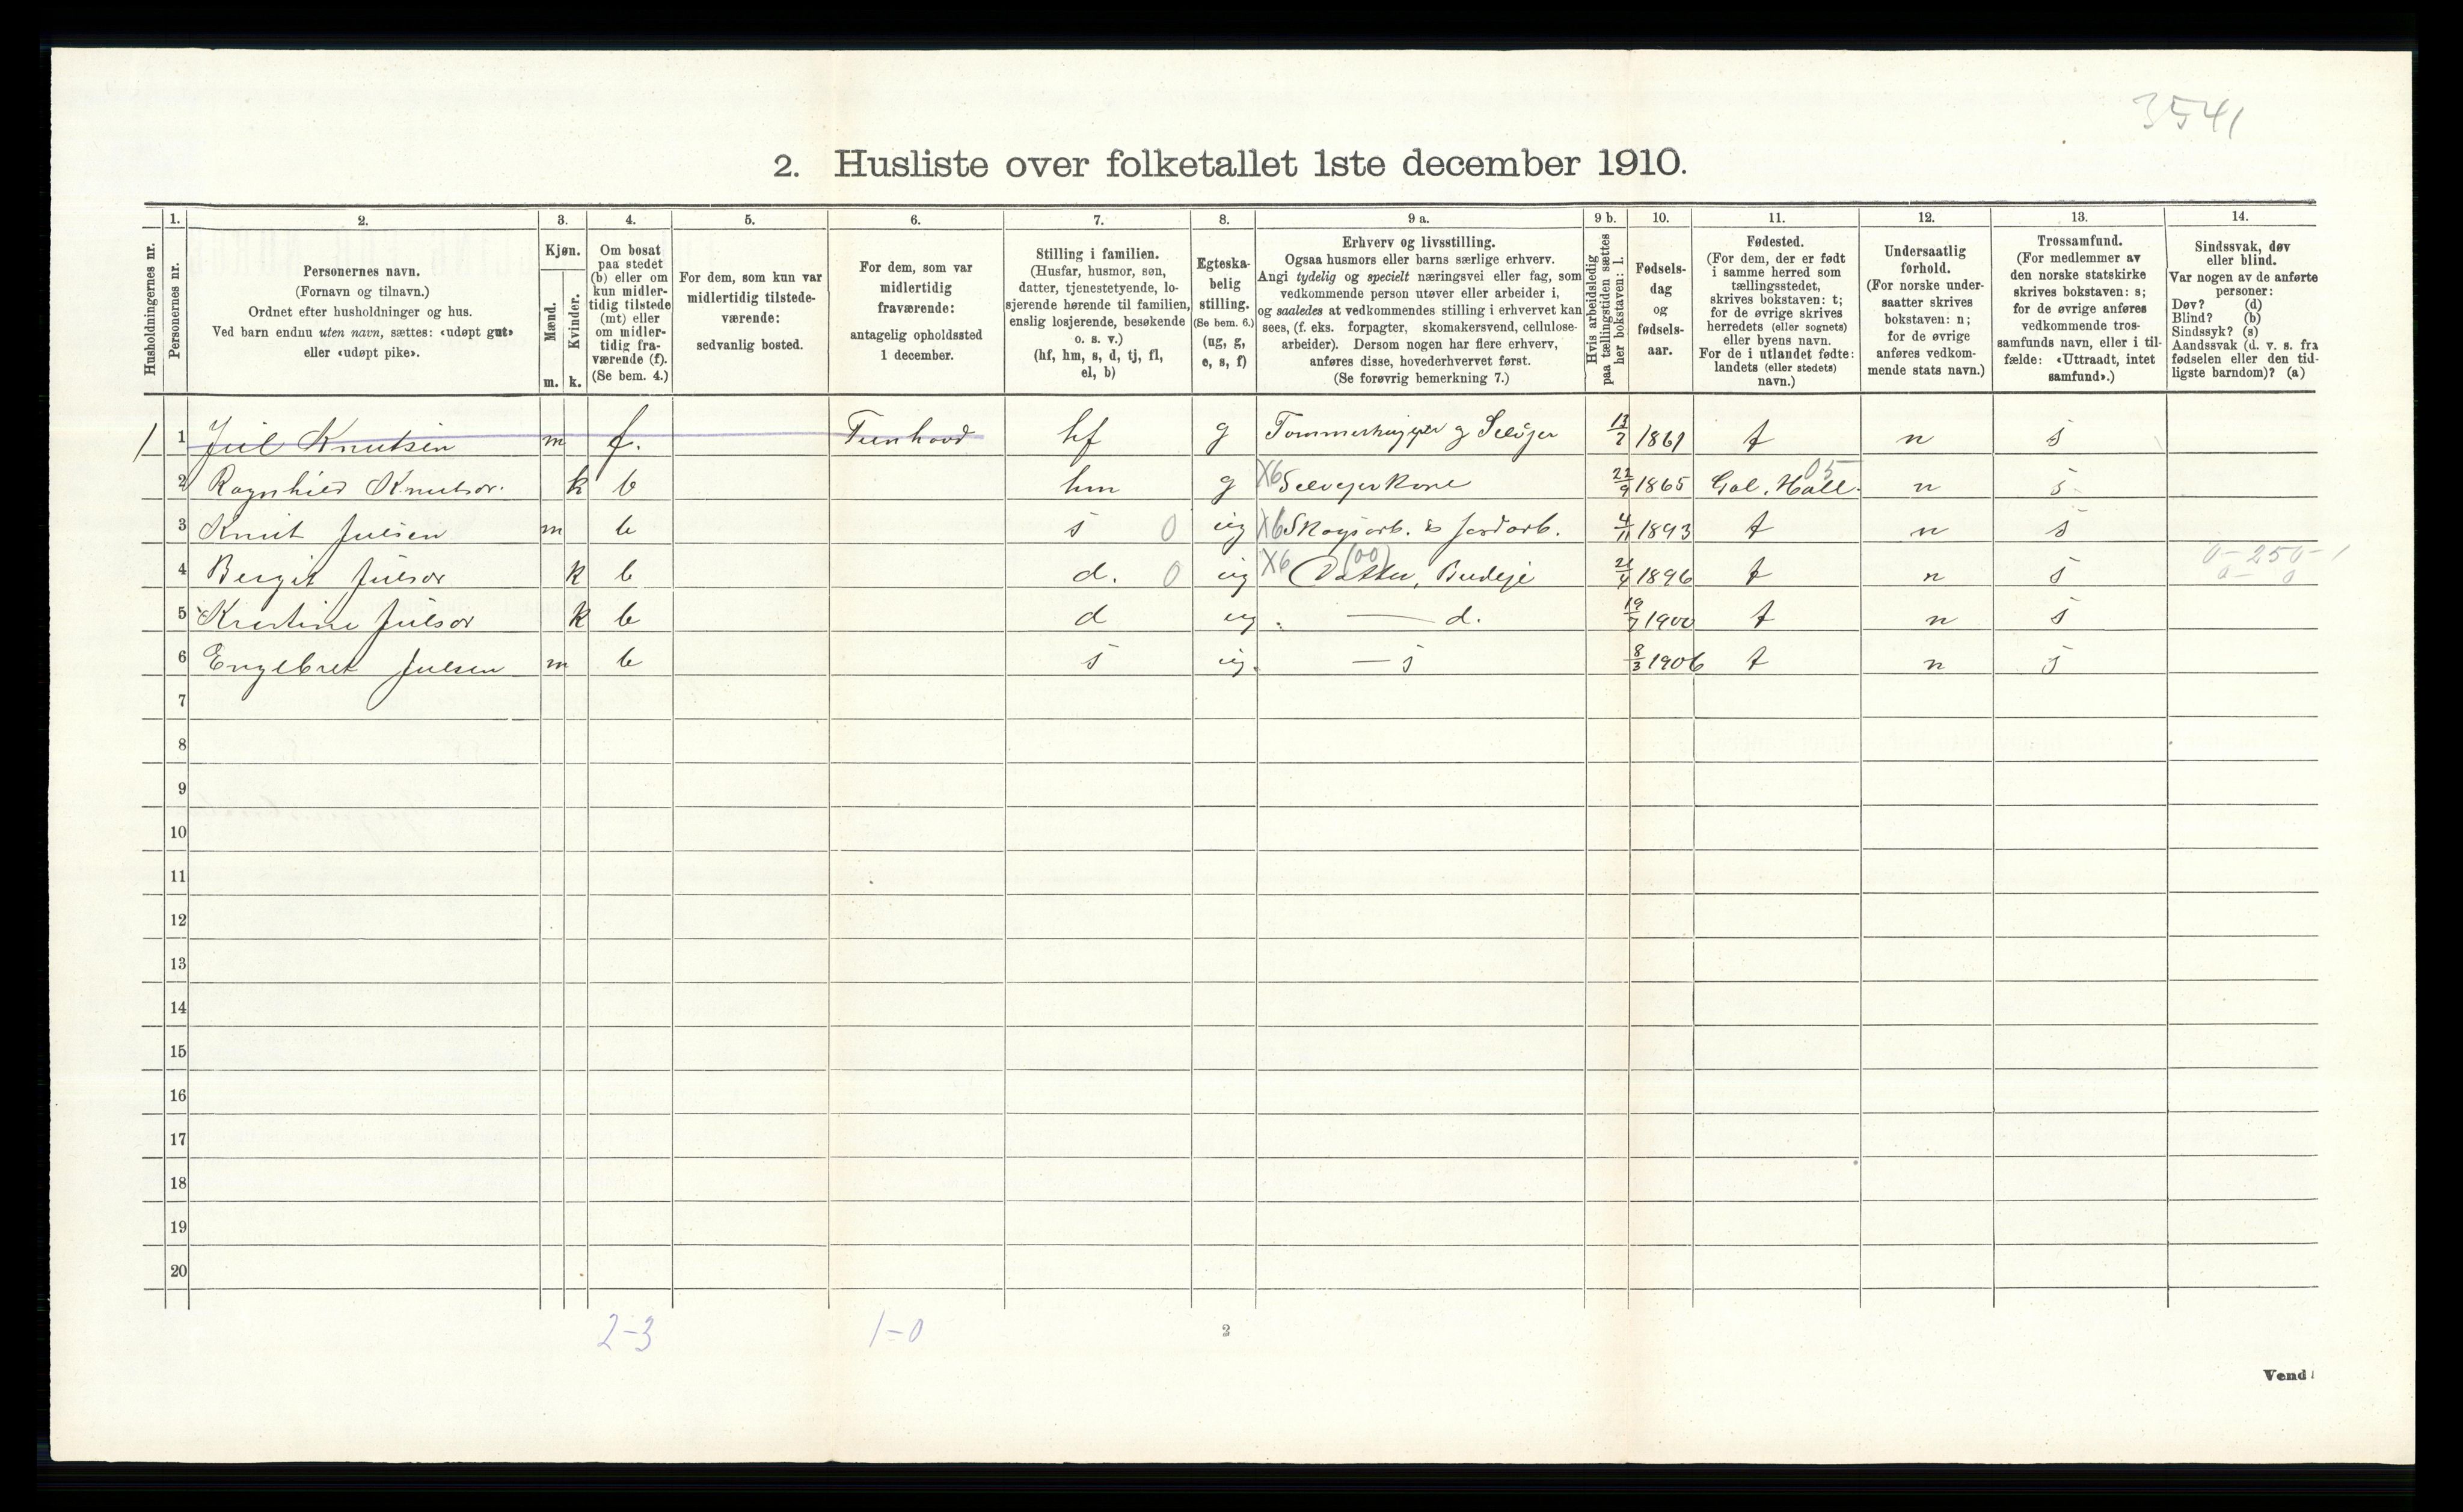 3541
2. Husliste over folketallet 1ste december 1910.
Husholdningernes nr.
1.
Personernes nr.
2.
Personernes navn.
(Fornavn og tilnavn.)
Ordnet efter husholdninger og hus.
Ved barn endnu uten navn, sættes: «udøpt gut»
eller «udøpt pike».
3.
Kjøn.
Mænd.
Kvinder.
m. k.
4.
Om bosat
paa stedet
(b) eller om
kun midler-
tidig tilstede
(mt) eller
om midler-
tidig fra-
værende (f).
(Se bem. 4.)
5.
For dem, som kun var
midlertidig tilstede-
værende:
sedvanlig bosted.
6.
For dem, som var
midlertidig
fraværende:
antagelig opholdssted
1 december.
7.
Stilling i familien.
(Husfar, husmor, søn,
datter, tjenestetyende, lo-
sjerende hørende til familien,
enslig losjerende, besøkende
o. s. v.)
(hf, hm, s, d, tj, fl,
el, b)
8.
Egteska-
belig
stilling.
(Se bem. 6.)
(ug, g,
e, s, f)
9 a.
Erhverv og livsstilling.
Ogsaa husmors eller barns særlige erhverv.
Angi tydelig og specielt næringsvei eller fag, som
vedkommende person utøver eller arbeider i,
og saaledes at vedkommendes stilling i erhvervet kan
sees, (f. eks. forpagter, skomakersvend, cellulose-
arbeider). Dersom nogen har flere erhverv,
anføres disse, hovederhvervet først.
(Se forøvrig bemerkning 7.)
9 b.
Hvis arbeidsledig
paa tællingstiden sættes
her bokstaven: l.
10.
Fødsels-
dag
og
fødsels-
aar.
11.
Fødested.
(For dem, der er født
i samme herred som
tællingsstedet,
skrives bokstaven: t;
for de øvrige skrives
herredets (eller sognets)
eller byens navn.
For de i utlandet fødte:
landets (eller stedets)
navn.)
12.
Undersaatlig
forhold.
(For norske under-
saatter skrives
bokstaven: n;
for de øvrige
anføres vedkom-
mende stats navn.)
13.
Trossamfund.
(For medlemmer av
den norske statskirke
skrives bokstaven: s;
for de øvrige anføres
vedkommende tros-
samfunds navn, eller i til-
fælde: «Uttraadt, intet
samfund».)
14.
Sindssvak, døv
eller blind.
Var nogen av de anførte
personer:
Døv? (d)
Blind? (b)
Sindssyk? (s)
Aandssvak (d. v. s. fra
fødselen eller den tid-
ligste barndom)? (a)
1 1 Juel Knutsen m f. Tunhovd hf g Tømmerhugger g Seleger 13/7 1861 t n s
2 Ragnhild Knutsor. k b hm g X6 Selvejerkone 22/9 1865 Gol. Hall. 05 n s
3 Knut Julsen m b s 0 ug X6 Skogsarb. & jordarb. 4/11 1893 t n s
4 Bergit Julsor k b d. 0 ug X6 (Datter, Budeje (00) 21/4 1896 t n s 0-250-1
0- 0
5 Kristine Julsor k b d ug . — d. 19/7 1900 t n s
6 Engebret Julsen m b s ug. — s 8/3 1906 t n s
7
8
9
10
11
12
13
14
15
16
17
18
19
20
2-3 1-0 2
Vend!